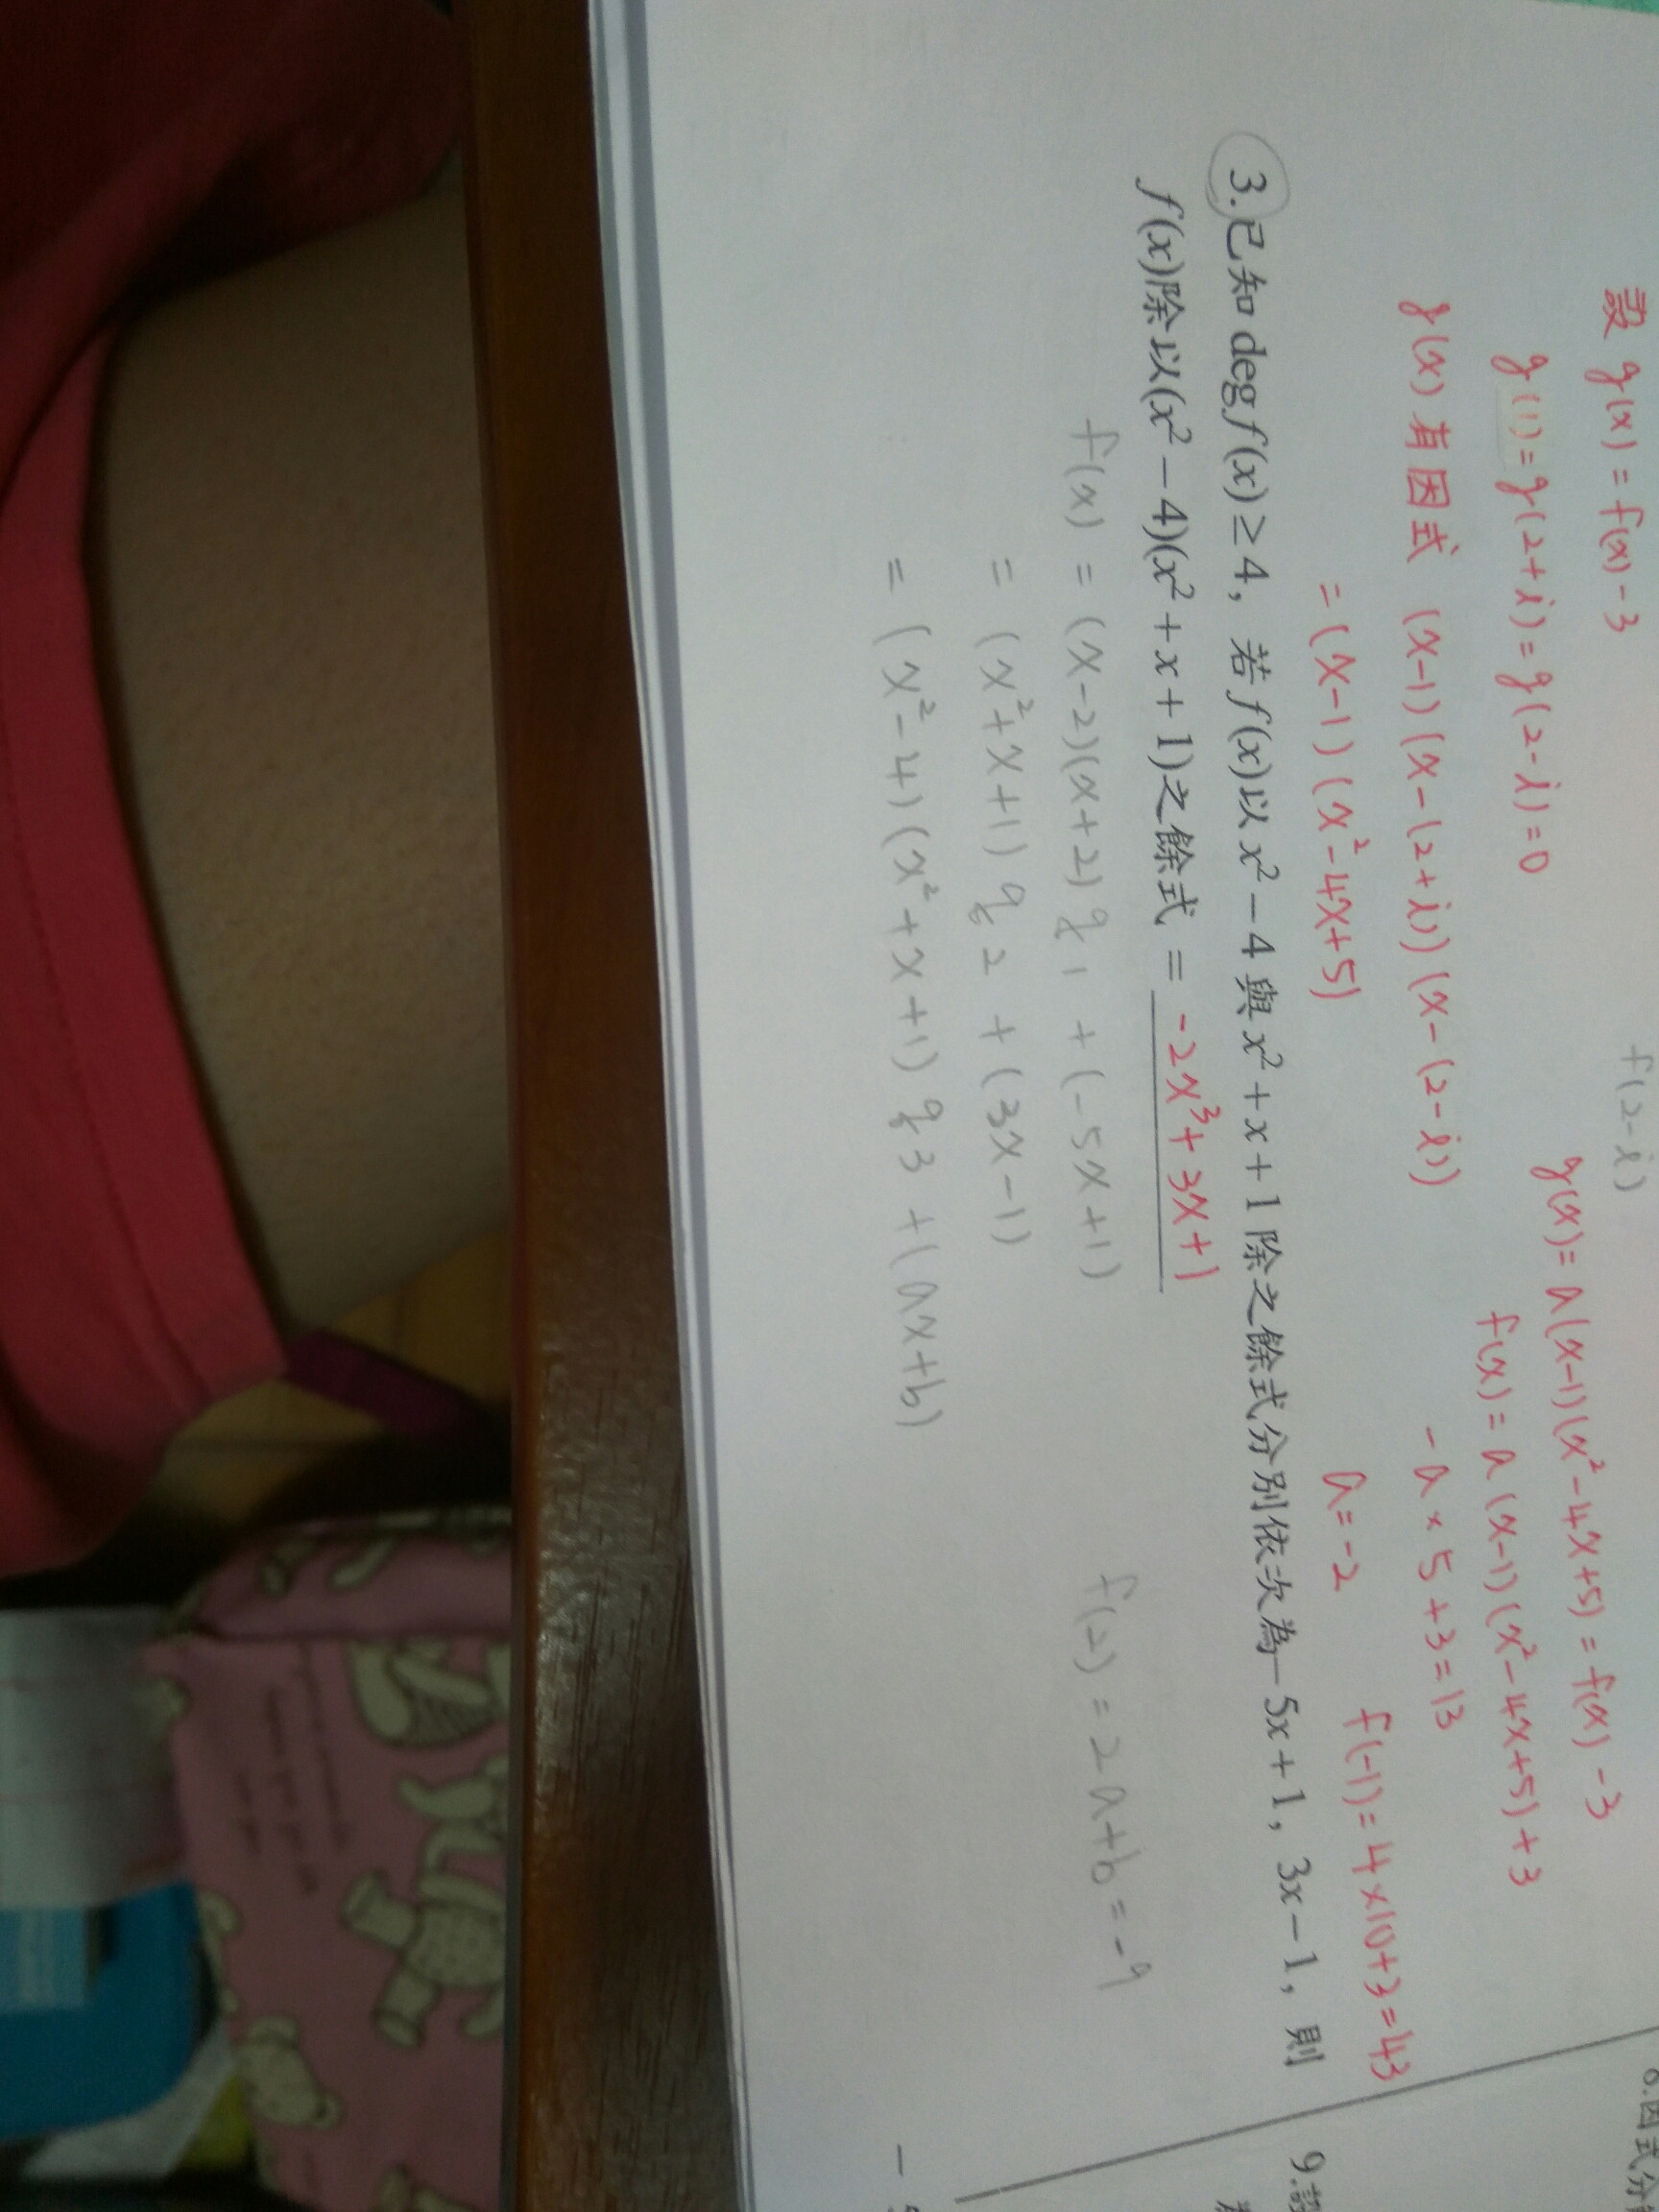 f(2-i)
設 g(x) = f(x) - 3
g(1) = g(2+i) = g(2-i) = 0
g(x) 有因式 (x-1)(x-(2+i))(x-(2-i))
= (x-1)(x²-4x+5)
g(x) = a(x-1)(x²-4x+5) = f(x) -3
f(x) = a(x-1)(x²-4x+5)+3
-a×5+3=13
a=-2
f(-1)=4×10+3=43
3.已知 deg f(x) ≥ 4，若 f(x)以 x² − 4 與 x² + x + 1 除之餘式分別依次為−5x + 1，3x − 1，則
f(x)除以(x² − 4)(x² + x + 1)之餘式 = -2x³+3x+1
f(x) = (x-2)(x+2) q1 + (-5x+1)
= (x²+x+1) q2 + (3x-1)
= (x²-4)(x²+x+1) q3 + (ax+b)
f(2) = 2a+b = -9
6.因式分
9.設